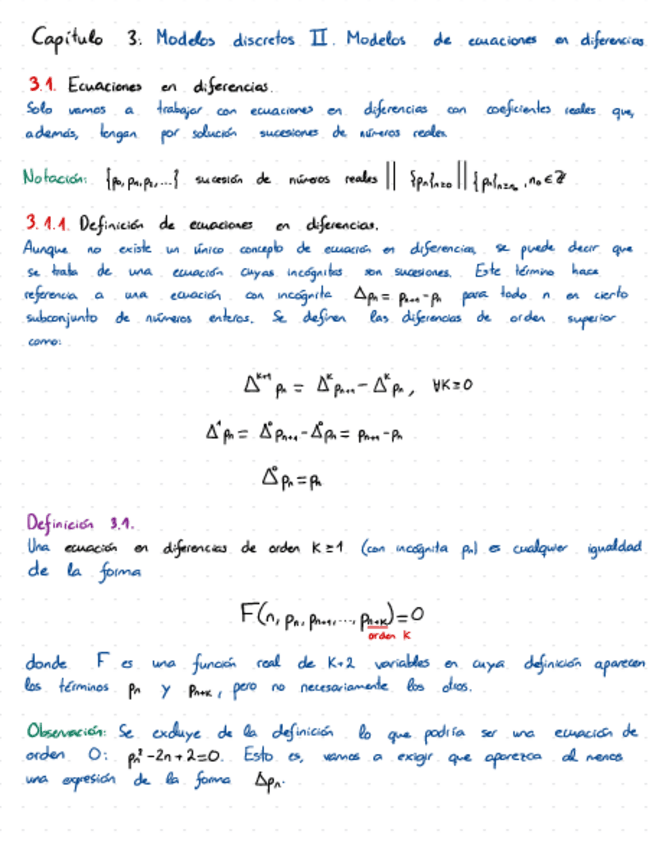 Capítulo 3: Modelos discretos II. Modelos de ecuaciones en diferencias
3.1. Ecuaciones en diferencias.
Solo vamos a trabajar con ecuaciones en diferencias con coeficientes reales que,
además, tengan por solución sucesiones de números reales.
Notación: {p₀, p₁, p₂, ...} sucesión de números reales || {pₙ}ₙ≥₀ || {pₙ}ₙ≥ₙ₀, n₀ ∈ ℤ
3.1.1. Definición de ecuaciones en diferencias.
Aunque no existe un único concepto de ecuación en diferencias, se puede decir que
se trata de una ecuación cuyas incógnitas son sucesiones. Este término hace
referencia a una ecuación con incógnita Δpₙ = pₙ₊₁ - pₙ para todo n en cierto
subconjunto de números enteros. Se definen las diferencias de orden superior
como:
Δᵏ⁺¹ pₙ = Δᵏ pₙ₊₁ - Δᵏ pₙ, ∀K≥0
Δ¹ pₙ = Δ⁰ pₙ₊₁ - Δ⁰ pₙ = pₙ₊₁ - pₙ
Δ⁰ pₙ = pₙ
Definición 3.1.
Una ecuación en diferencias de orden K≥1 (con incógnita pₙ) es cualquier igualdad
de la forma
F(n, pₙ, pₙ₊₁, ..., pₙ₊ₖ) = 0
orden K
donde F es una función real de K+2 variables en cuya definición aparecen
los términos pₙ y pₙ₊ₖ, pero no necesariamente los otros.
Observación: Se excluye de la definición lo que podría ser una ecuación de
orden 0: pₙ² - 2n + 2 = 0. Esto es, vamos a exigir que aparezca al menos
una expresión de la forma Δpₙ.